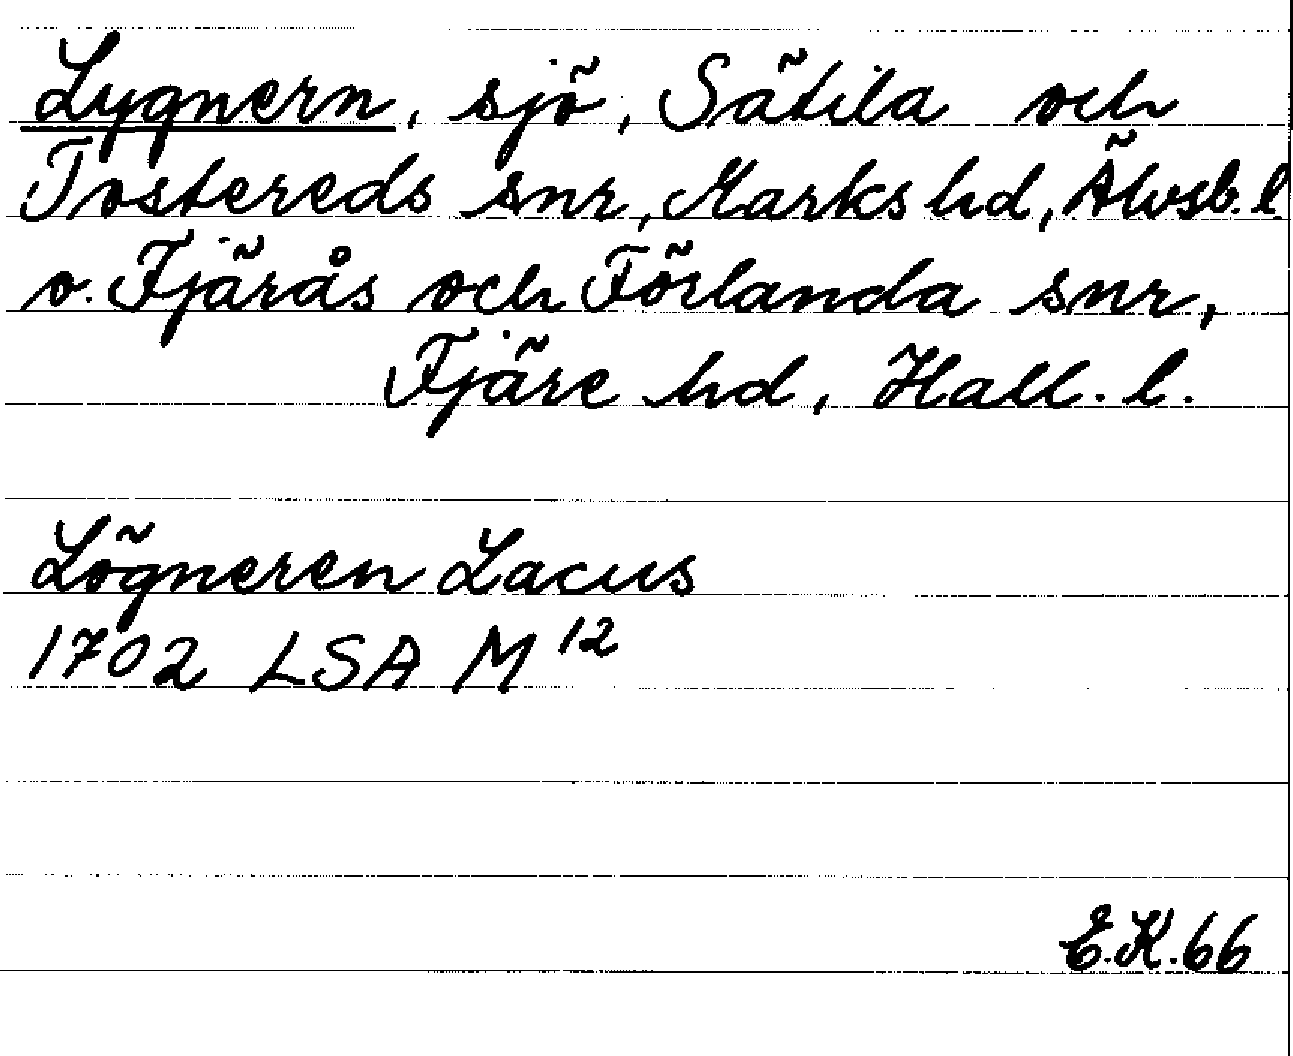 Lygnern, sjö, Sätila och
Tostereds snr, Marks hd, Älvsb. l
o. Fjärås och Förlanda snr,
Fjäre hd, Hall. l.
Lögneren Lacus
1702 LSA M 12
E.K. 66